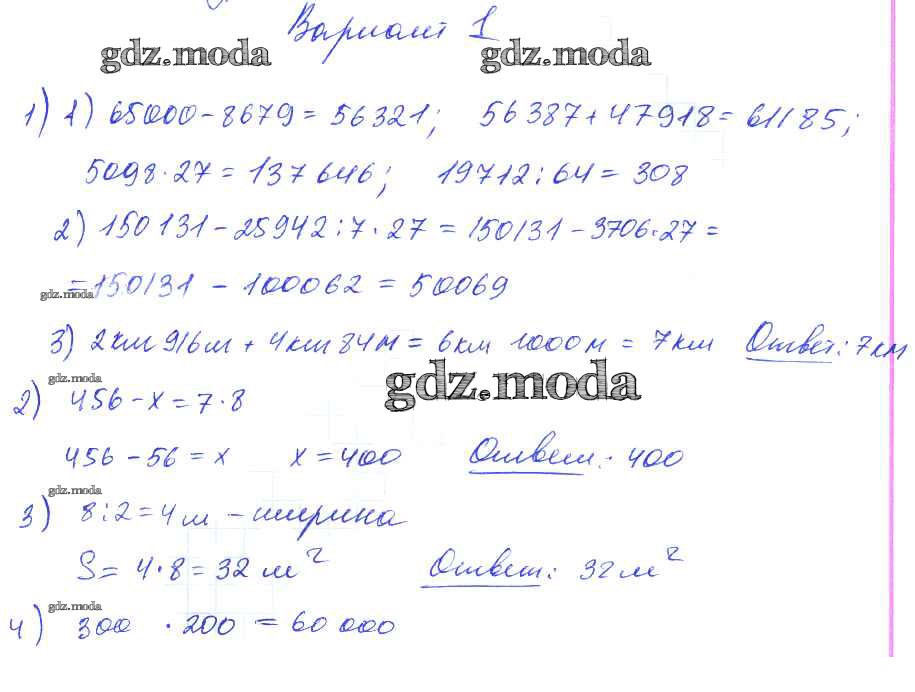 Вариант 1
gdz.moda gdz.moda
1) 1) 65000 - 8679 = 56321; 56387 + 47918 = 61185;
5098 · 27 = 137646; 19712 : 64 = 308
2) 150131 - 25942 : 7 · 27 = 150131 - 3706 · 27 =
gdz.moda = 150131 - 100062 = 50069
3) 2 км 916 м + 4 км 84 м = 6 км 1000 м = 7 км Ответ: 7 км
gdz.moda gdz.moda
2) 456 - x = 7 · 8
456 - 56 = x x = 400 Ответ: 400
gdz.moda
3) 8 : 2 = 4 м - ширина
S = 4 · 8 = 32 м² Ответ: 32 м²
gdz.moda
4) 300 · 200 = 60 000